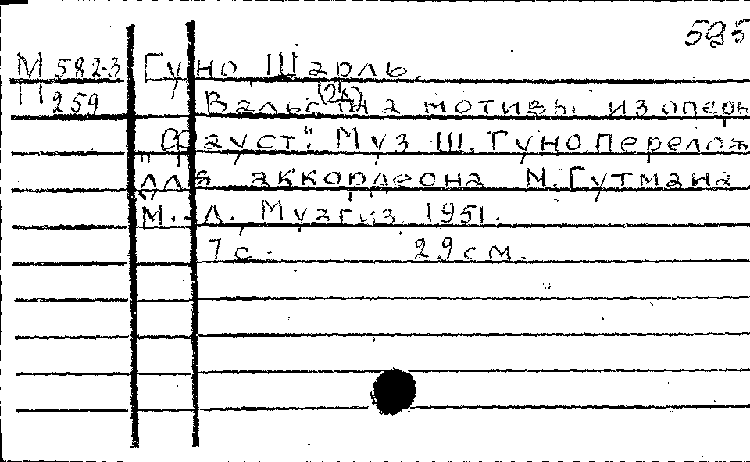 595
М 582-3 Гуно Шарль.
П 259 Вальс на мотивы из оперы
"Фауст". Муз Ш. Гуно Перелож
для аккордеона М. Гутмана
М.-Л. Музгиз 1951.
7 с. 29 см.